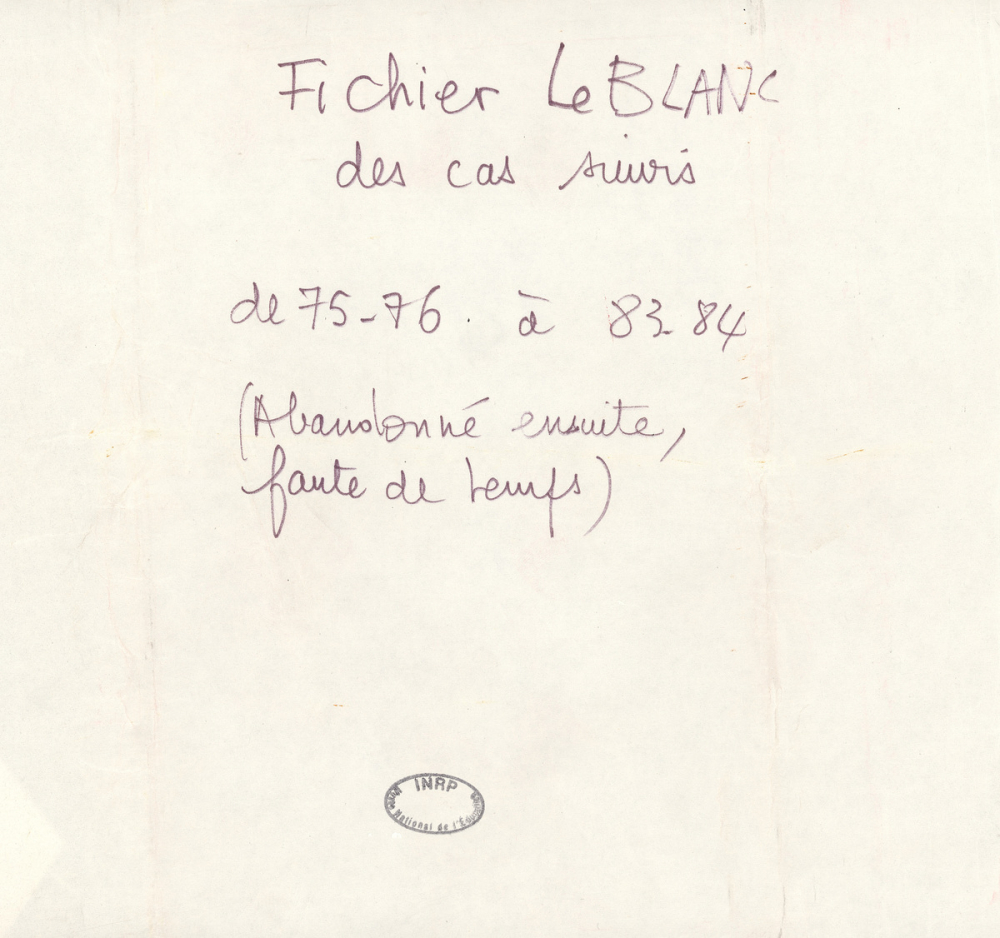 Fichier LeBLANC
des cas suivis
de 75-76 à 83-84
(Abandonné ensuite,
faute de temps)
INRP
National de l'Éducation